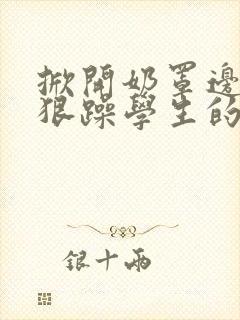 掀開奶罩邊
狠躁學生的
银十兩